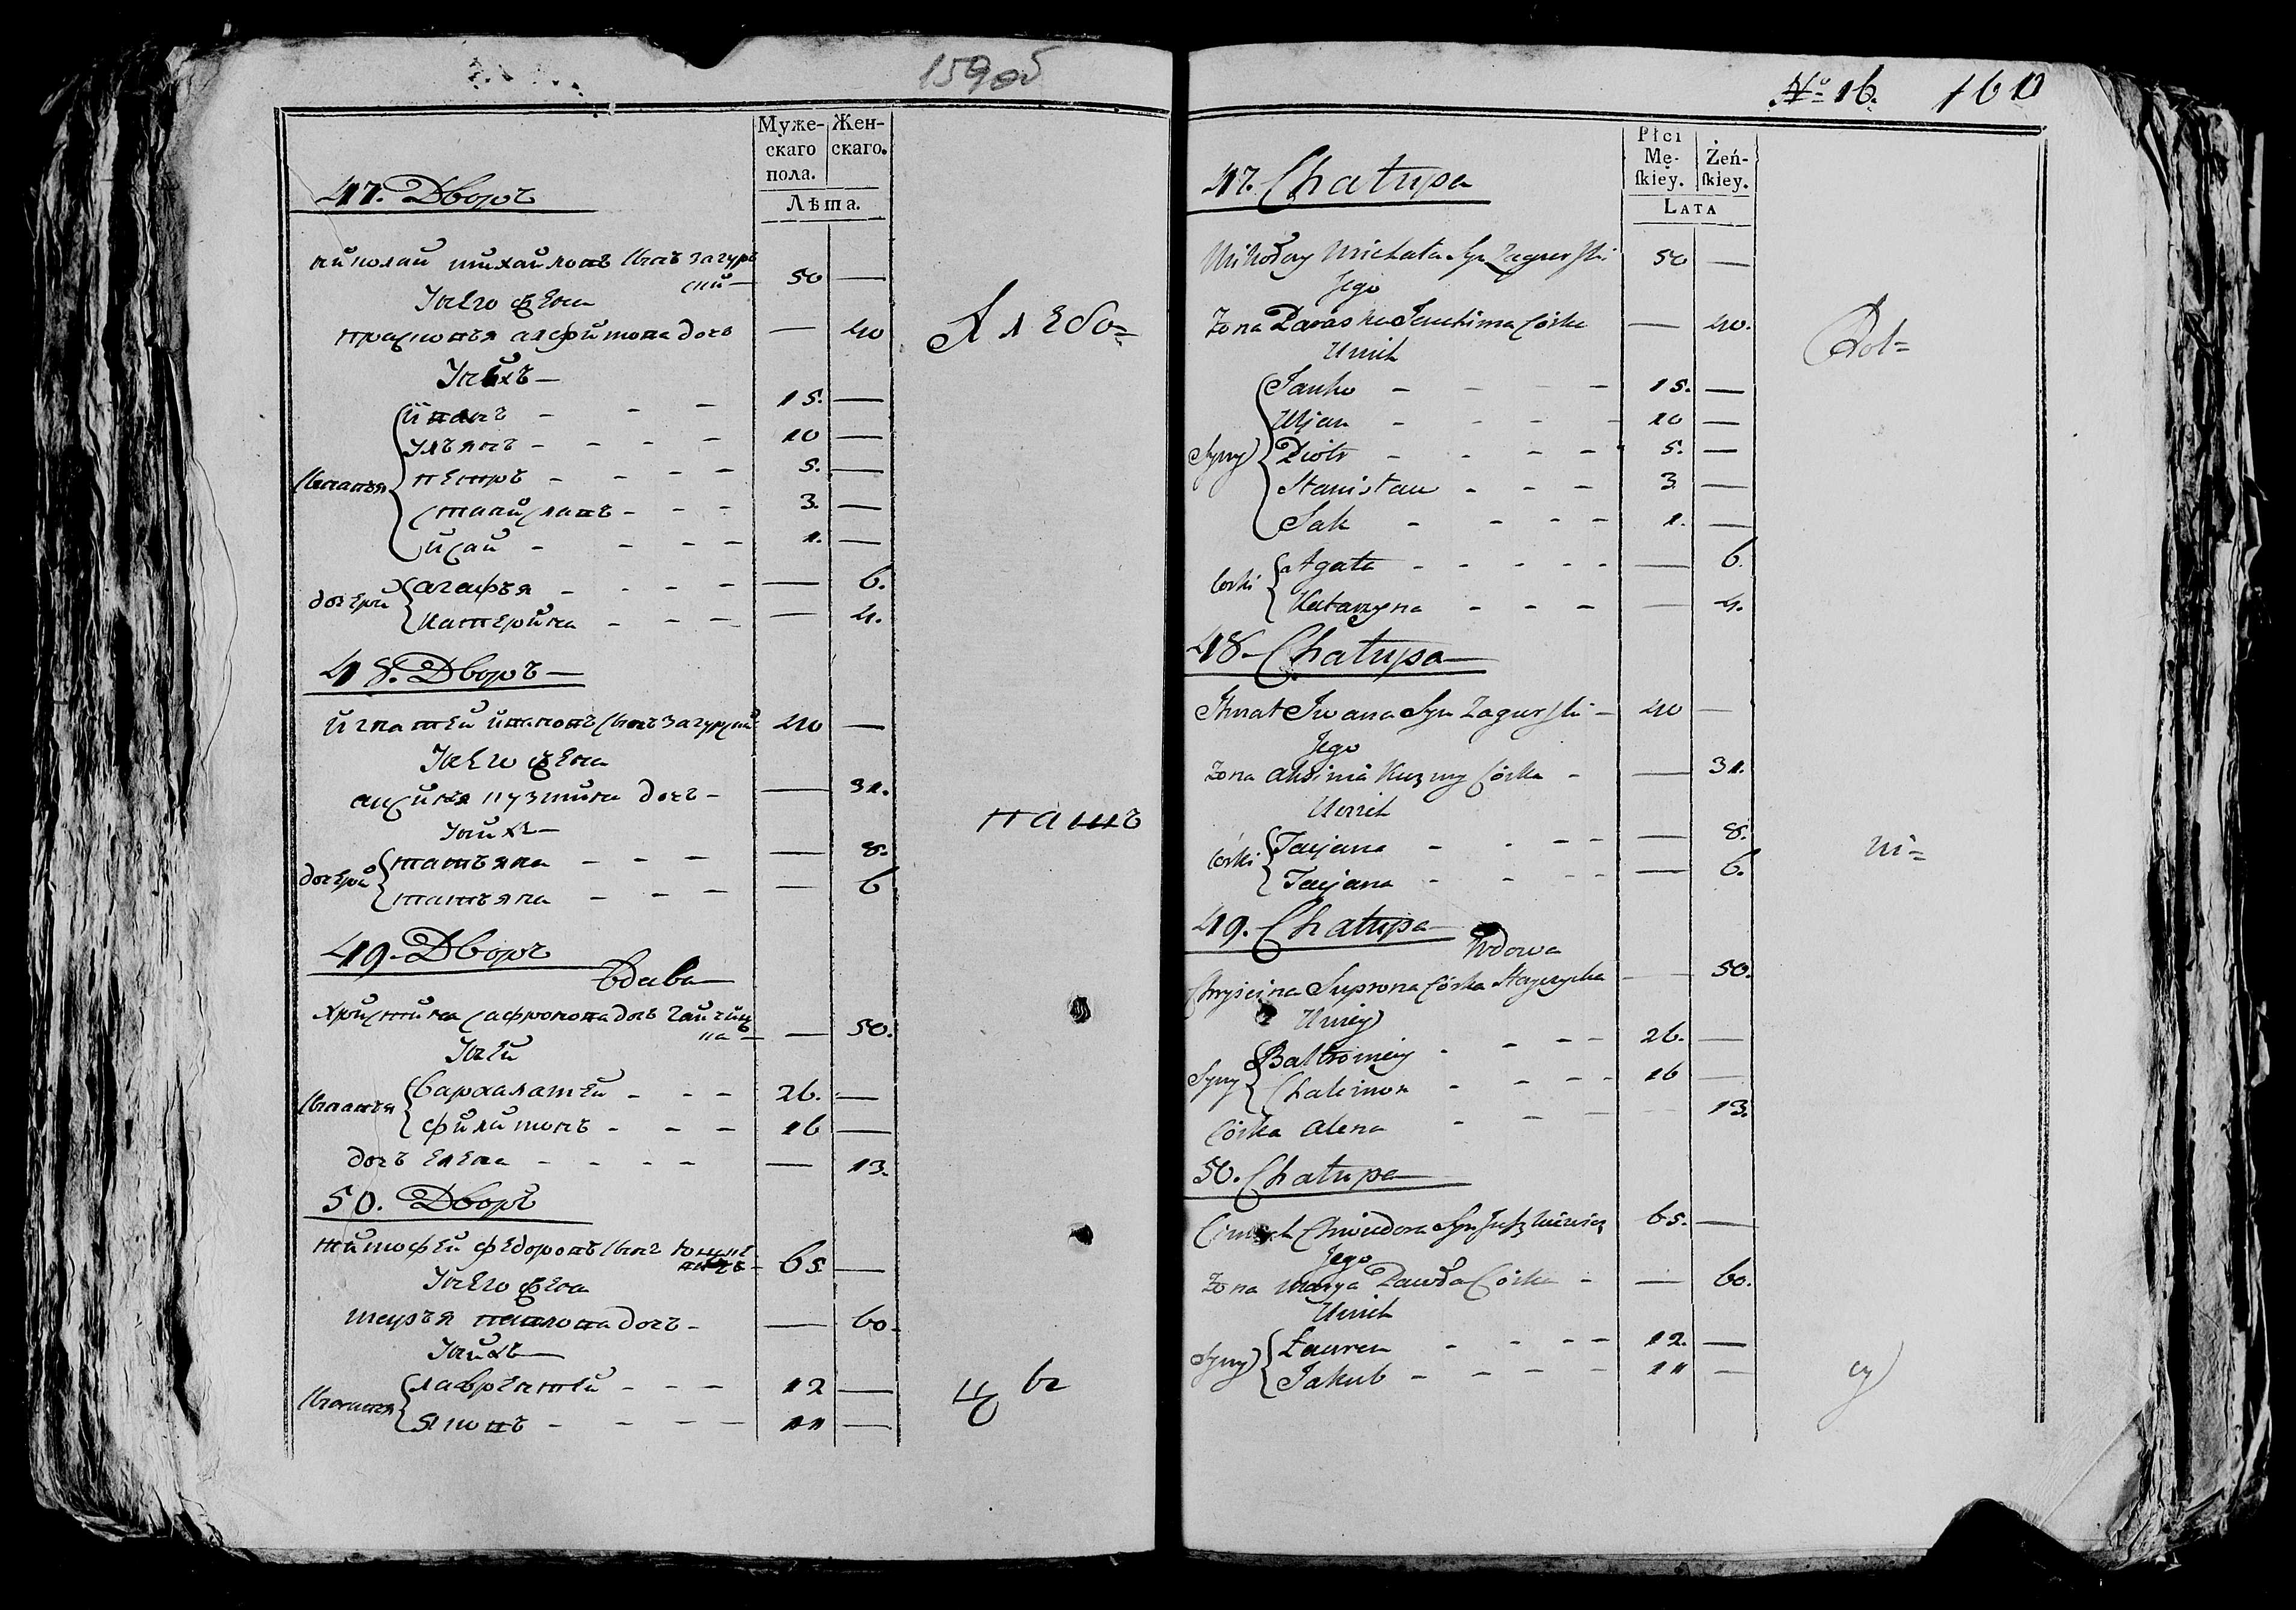 159 об
Муже- Жен-
скаго скаго.
пола.
Лѣта.
47. Дворъ
николай михайловъ сынъ загур
ский — 50 —
У него жена
прасковья ахфимова дочь — 40
У них —
сыновья
иванъ - - - 15. —
ульянъ - - - - 10 —
петръ - - - - 5. —
станиславъ - - - 3. —
исай - - - - 1. —
дочери
агафья - - - - — 6.
катерина - - - — 4.
48. Дворъ —
игнатей ивановъ сынъ загурский 40 —
У него жена
аксинья кузмина дочь - — 31.
У них —
дочери
татьяна - - - — 8.
татьяна - - - — 6
49. Дворъ
вдова
христина сафронова дочь
— 50.
У ней
сыновья
вархаламей - - - 26. —
филимонъ - - - 16 —
дочь елена - - - - — 13.
50. Дворъ
тимофей федоровъ сынъ
65 —
У него жена
марья павлова дочь - — 60.
У нихъ
сыновья
лаврентей - - - 12 —
яковъ - - - - 11 —
Хлебо=
паш
цы
№ 16. 160
Płci
Mę- Żeń-
ſkiey. ſkiey.
LATA
47. Chałupa
Mikołay Michała Syn Zagurſki 50 —
Jego
Żona Paraska Jauchima Córka — 40.
U nich
Syny
Janko - - - - 15. —
Uljan - - - - 10 —
Piotr - - - - 5. —
Stanisław - - - 3 —
Sak - - - - 1. —
Corki
Agata - - - - - — 6.
Katarzyna - - - — 4.
48. Chałupa
Ihnat Iwana Syn Zagurſki - 40 —
Jego
Żona Aksinia Kuzmy Córka - — 31.
U nich
Córki
Tacjana - - - - — 8.
Tacjana - - - - — 6.
49. Chałupa
Wdowa
Chryścina Suprona Córka — 50.
U niey
Syny
Bałtromiey - - - - 26. —
Chalimon - - - - 16 —
Córka Alena - - - — 13.
50. Chałupa
Cimoch Chwiedora Syn 65. —
Jego
Żona Marya Pawła Córka - — 60.
U nich
Syny
Ławren - - - - 12. —
Jakub - - - - 11 —
Rol=
ni=
cy